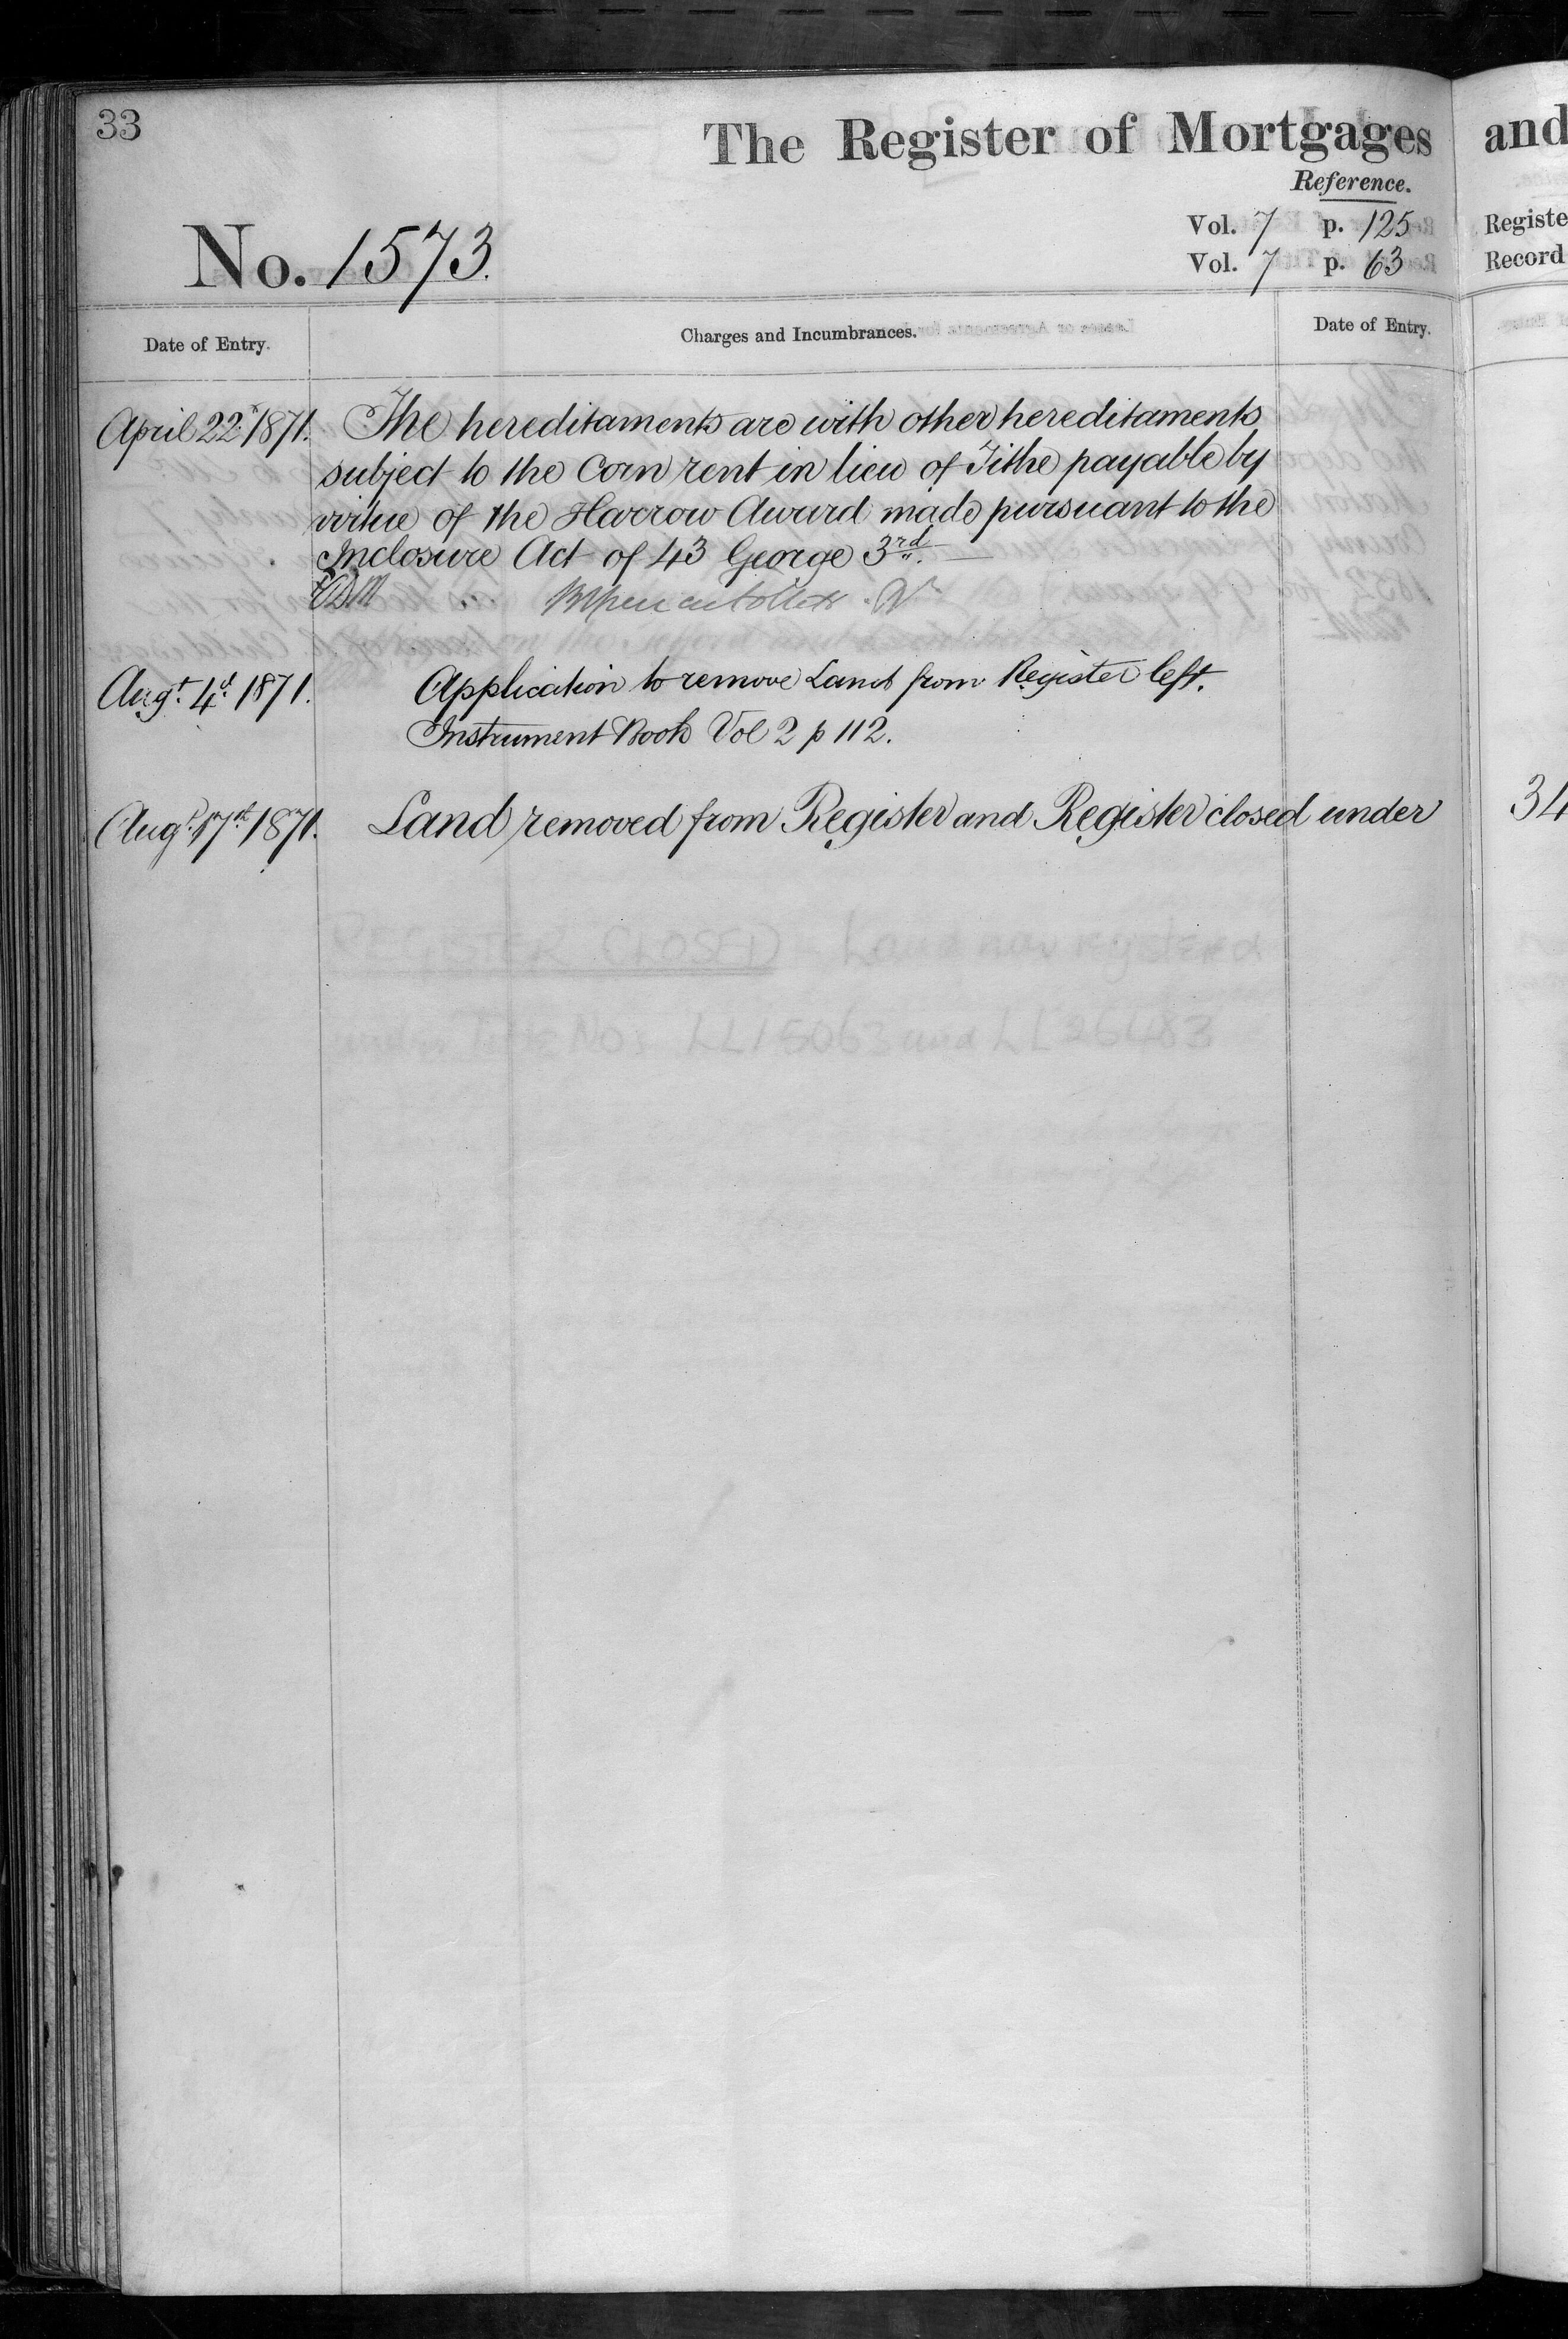 33
The Register of Mortgages and
Reference.
Vol. 7 p. 125 Registe
Vol. 7 p. 63 Record
No. 1573.
Date of Entry. Charges and Incumbrances. Date of Entry.
April 22d 1871. The hereditaments are with other hereditaments
subject to the Corn rent in lieu of Tithe payable by
virtue of the Harrow Award made pursuant to the
Inclosure Act of 43 George 3rd.
Augt. 4th 1871. Application to remove Land from Register left.
Instrument Book Vol 2 p 112.
Augt. 17th 1871. Land removed from Register and Register closed under 34
REGISTER CLOSED - Land now registered
under Title Nos LL15063 and LL26483